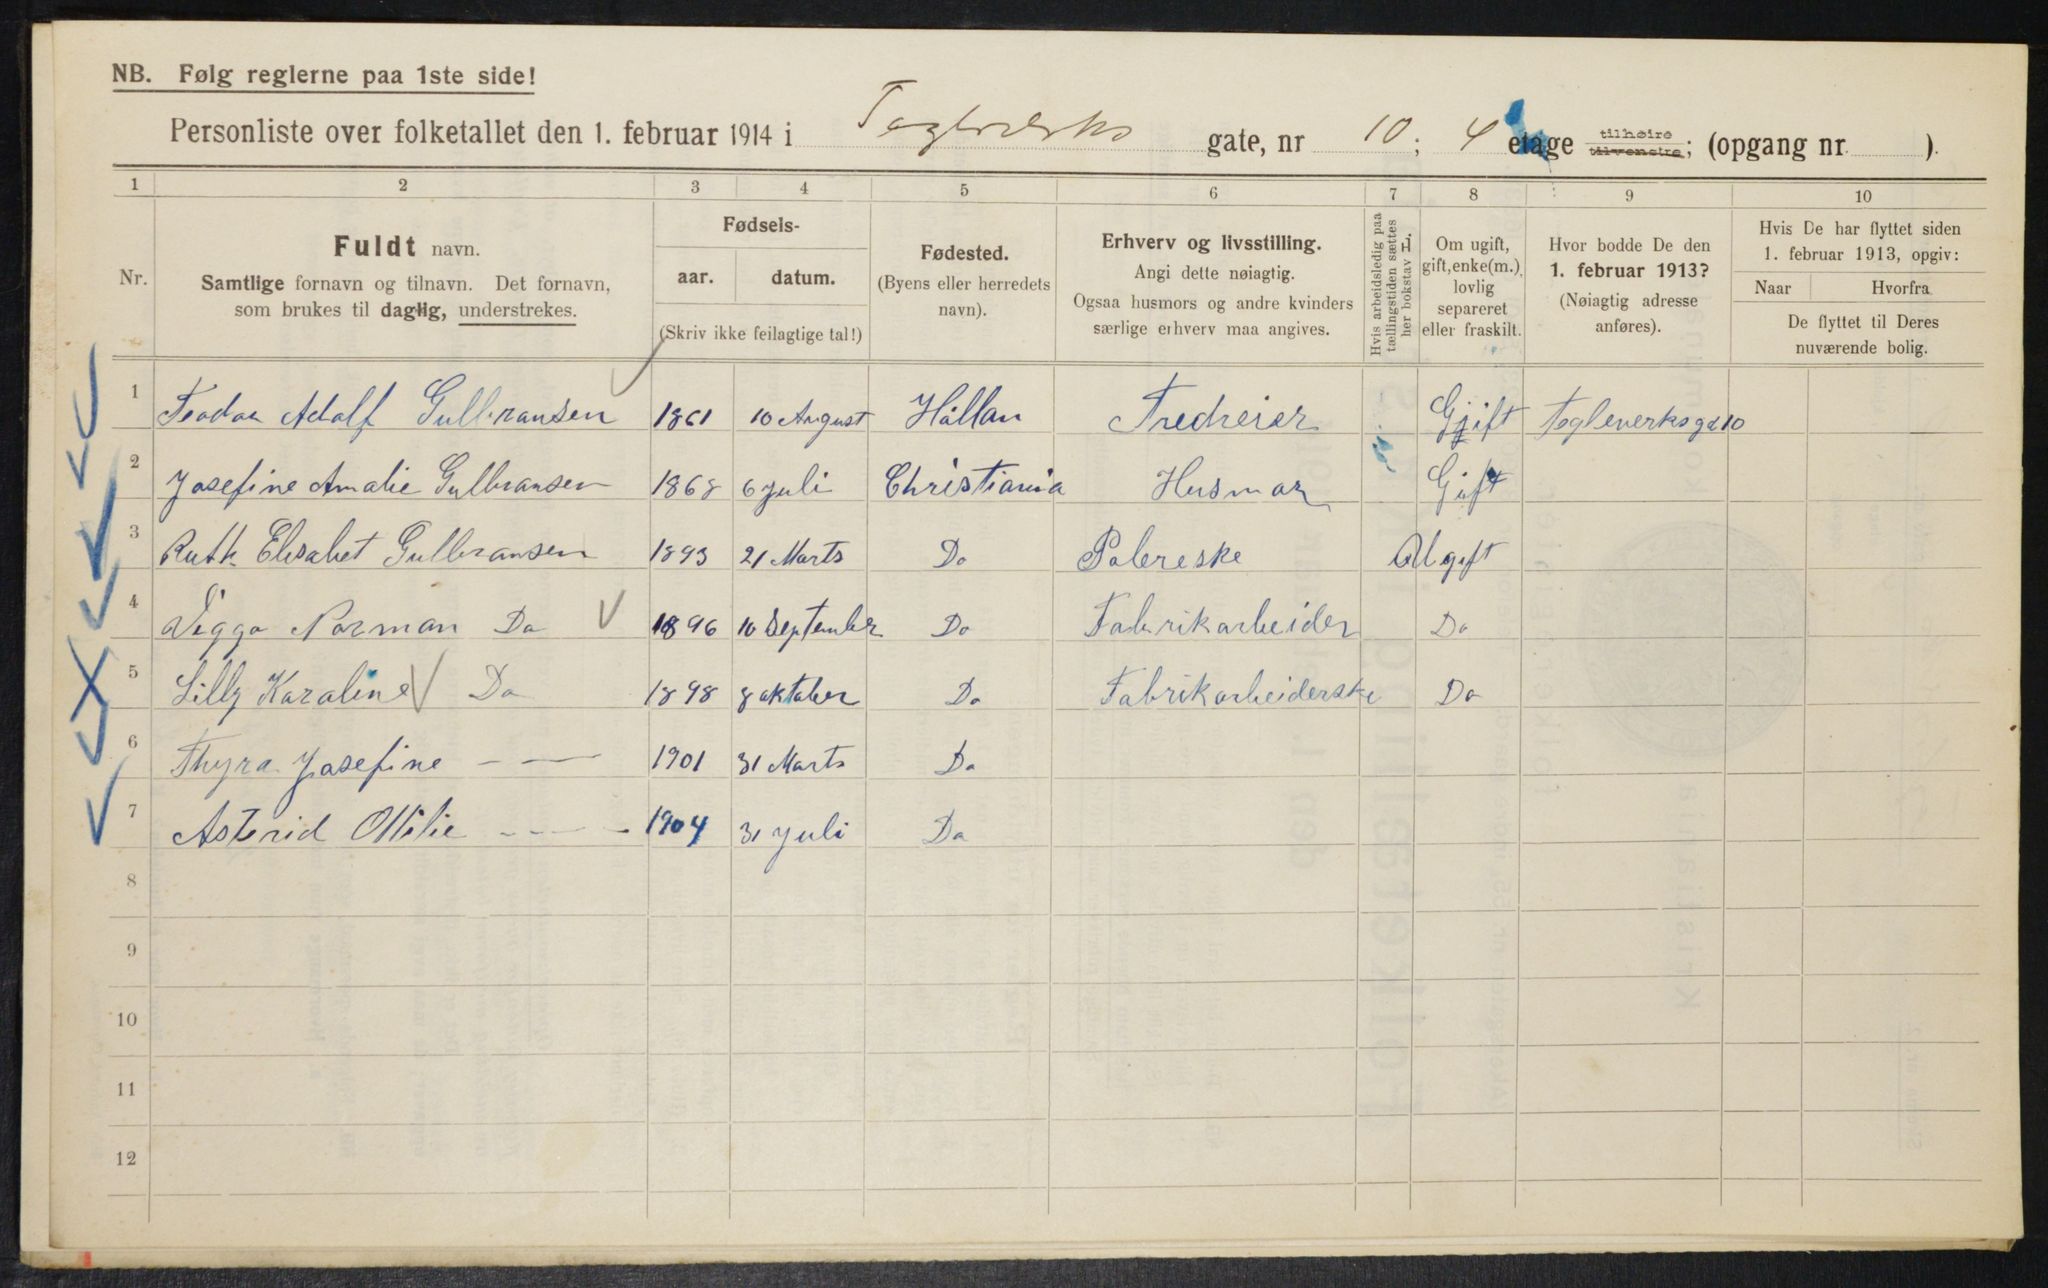 NB. Følg reglerne paa 1ste side!
Personliste over folketallet den 1. februar 1914 i Teglverks gate, nr 10; 4 etage tilhøire tilvenstre; (opgang nr. ).
1 2 3 4 5 6 7 8 9 10
Nr.
Fuldt navn.
Samtlige fornavn og tilnavn. Det fornavn,
som brukes til daglig, understrekes.
Fødsels-
aar. datum.
(Skriv ikke feilagtige tal!)
Fødested.
(Byens eller herredets
navn).
Erhverv og livsstilling.
Angi dette nøiagtig.
Ogsaa husmors og andre kvinders
særlige erhverv maa angives.
Hvis arbeidsledig paa
tællingstiden sættes
her bokstav L.
Om ugift,
gift, enke(m.),
lovlig
separeret
eller fraskilt.
Hvor bodde De den
1. februar 1913?
(Nøiagtig adresse
anføres).
Hvis De har flyttet siden
1. februar 1913, opgiv:
Naar Hvorfra
De flyttet til Deres
nuværende bolig.
1 Teodor Adolf Gulbransen 1861 10 August Hållan Fredreier Gift Teglverksgd 10
2 Josefine Amalie Gulbransen 1868 6 Juli Christiania Husmor Gift
3 Ruth Elisabet Gulbransen 1893 21 Marts Do Polereske Ugift
4 Viggo Norman Do 1896 10 September Do Fabrikarbeider Do
5 Lilly Karoline Do 1898 8 oktober Do Fabrikarbeiderske Do
6 Thyra Josefine - — 1901 31 Marts Do
7 Astrid Ottilie - - — - 1904 31 Juli Do
8
9
10
11
12